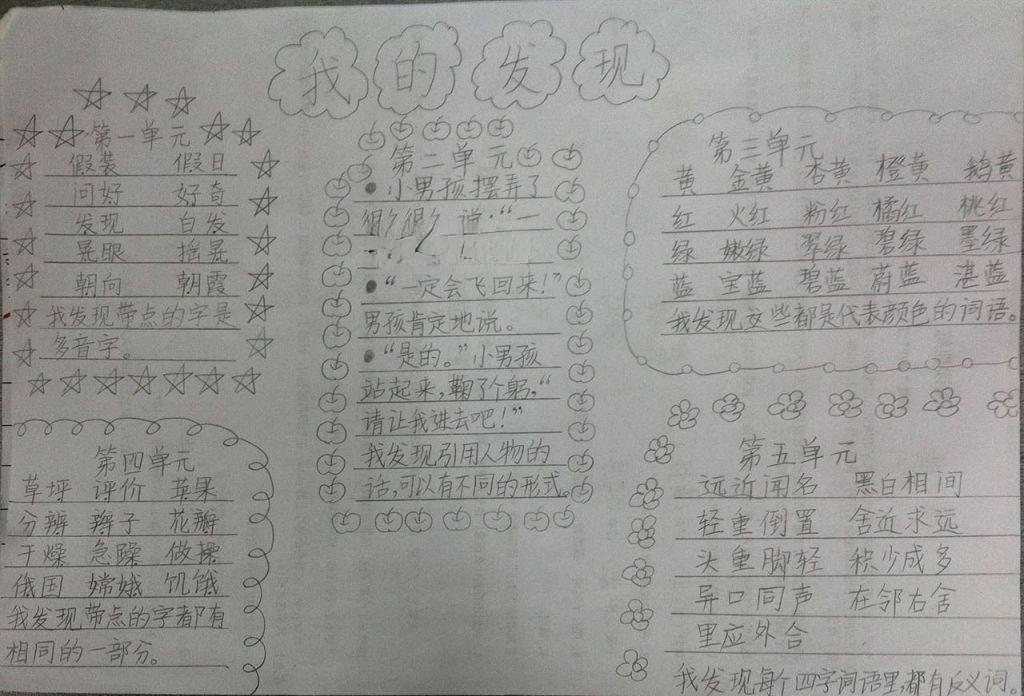 我的发现
第一单元
假装 假日
问好 好奇
发现 白发
晃眼 摇晃
朝向 朝霞
我发现带点的字是
多音字。
第二单元
●小男孩摆弄了
很久很久，说：“一
●“一定会飞回来！”
男孩肯定地说。
●“是的。”小男孩
站起来，鞠了个躬，“
请让我进去吧！”
我发现引用人物的
话，可以有不同的形式。
第三单元
黄 金黄 杏黄 橙黄 鹅黄
红 火红 粉红 橘红 桃红
绿 嫩绿 翠绿 碧绿 墨绿
蓝 宝蓝 碧蓝 蔚蓝 湛蓝
我发现这些都是代表颜色的词语。
第四单元
草坪 评价 苹果
分辨 辫子 花瓣
干燥 急躁 做操
俄国 嫦娥 饥饿
我发现带点的字都有
相同的一部分。
第五单元
远近闻名 黑白相间
轻重倒置 舍近求远
头重脚轻 积少成多
异口同声 左邻右舍
里应外合
我发现每个四字词语里都有反义词。